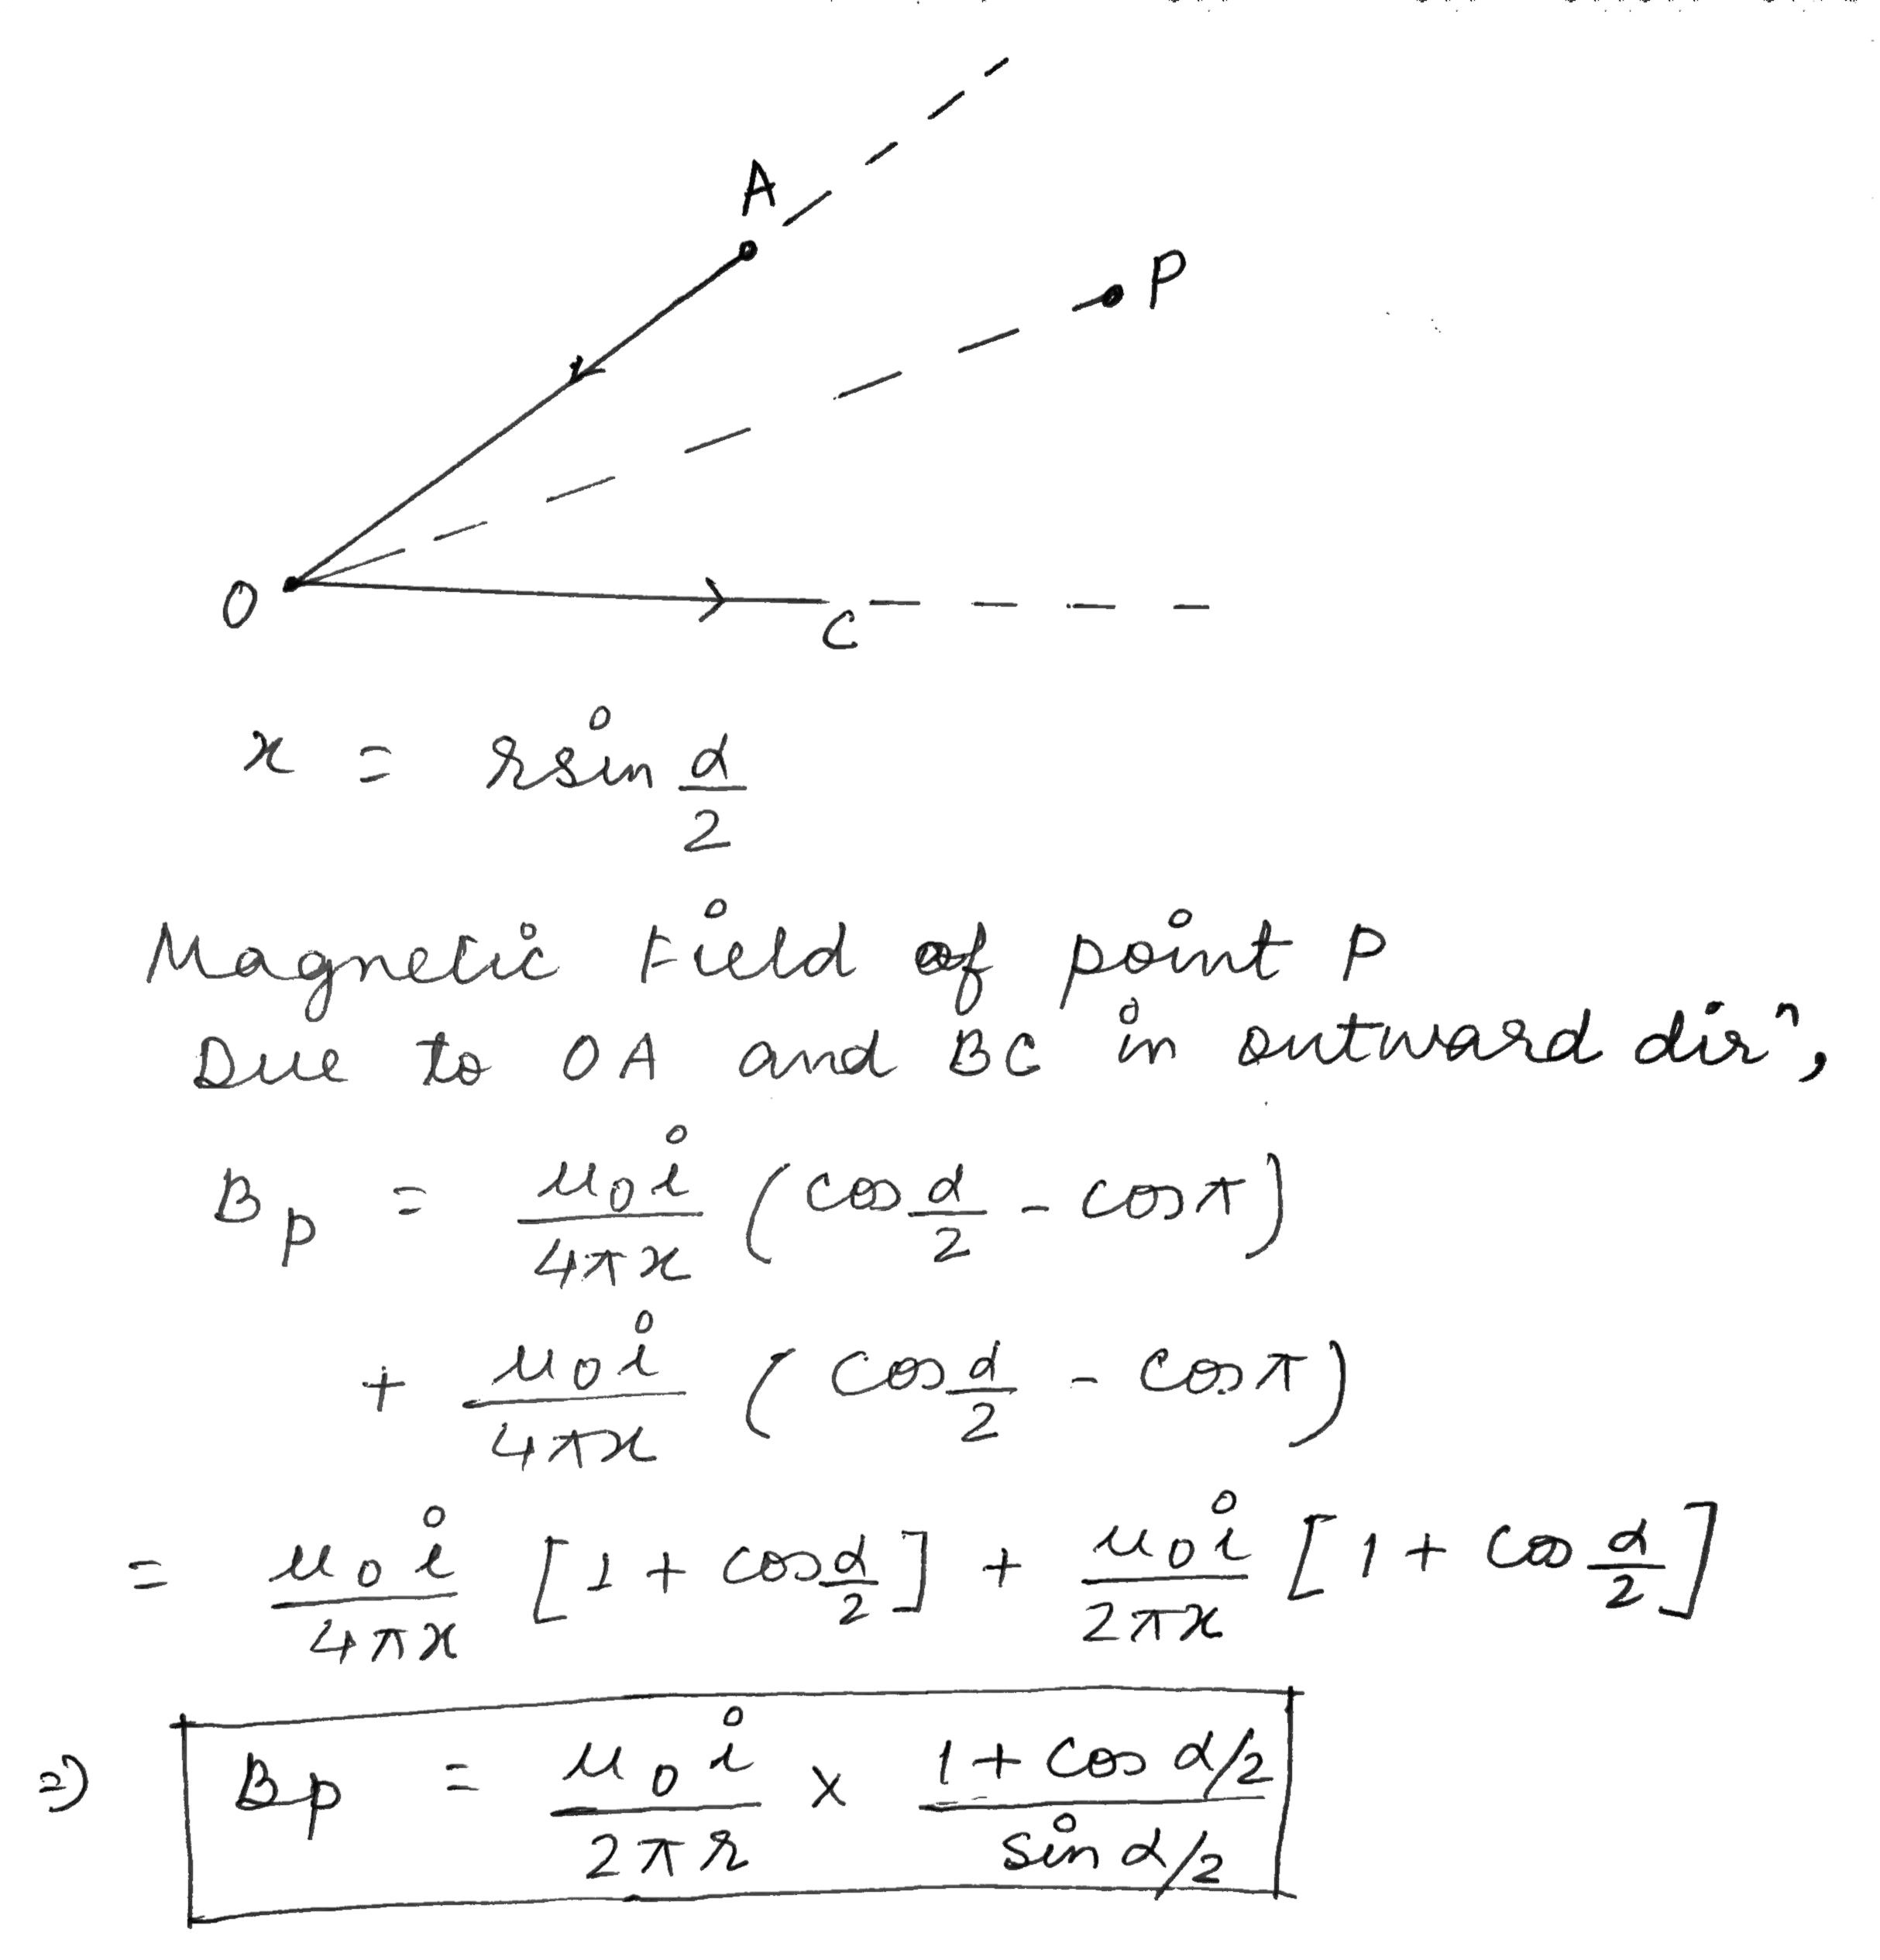 A
P
O
C
x = r sin α/2
Magnetic Field of point P
Due to OA and BC in outward dirⁿ,
Bp = μ₀i/4πx (cos α/2 - cos π)
+ μ₀i/4πx (cos α/2 - cos π)
= μ₀i/4πx [1 + cos α/2] + μ₀i/2πx [1 + cos α/2]
⇒ Bp = μ₀i/2πr × 1 + cos α/2 / sin α/2